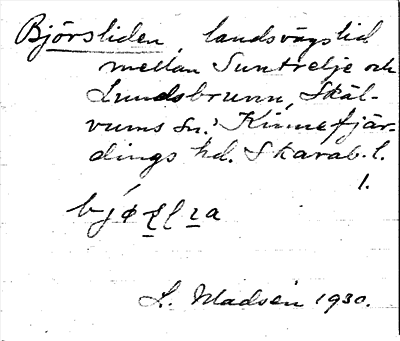 Björsliden, landsvägslid
mellan Suntrelje och
Lundsbrunn, Skäl-
vums sn. Kinnefjär-
dings hd. Skarab. l.
1.
L. Madsén 1930.